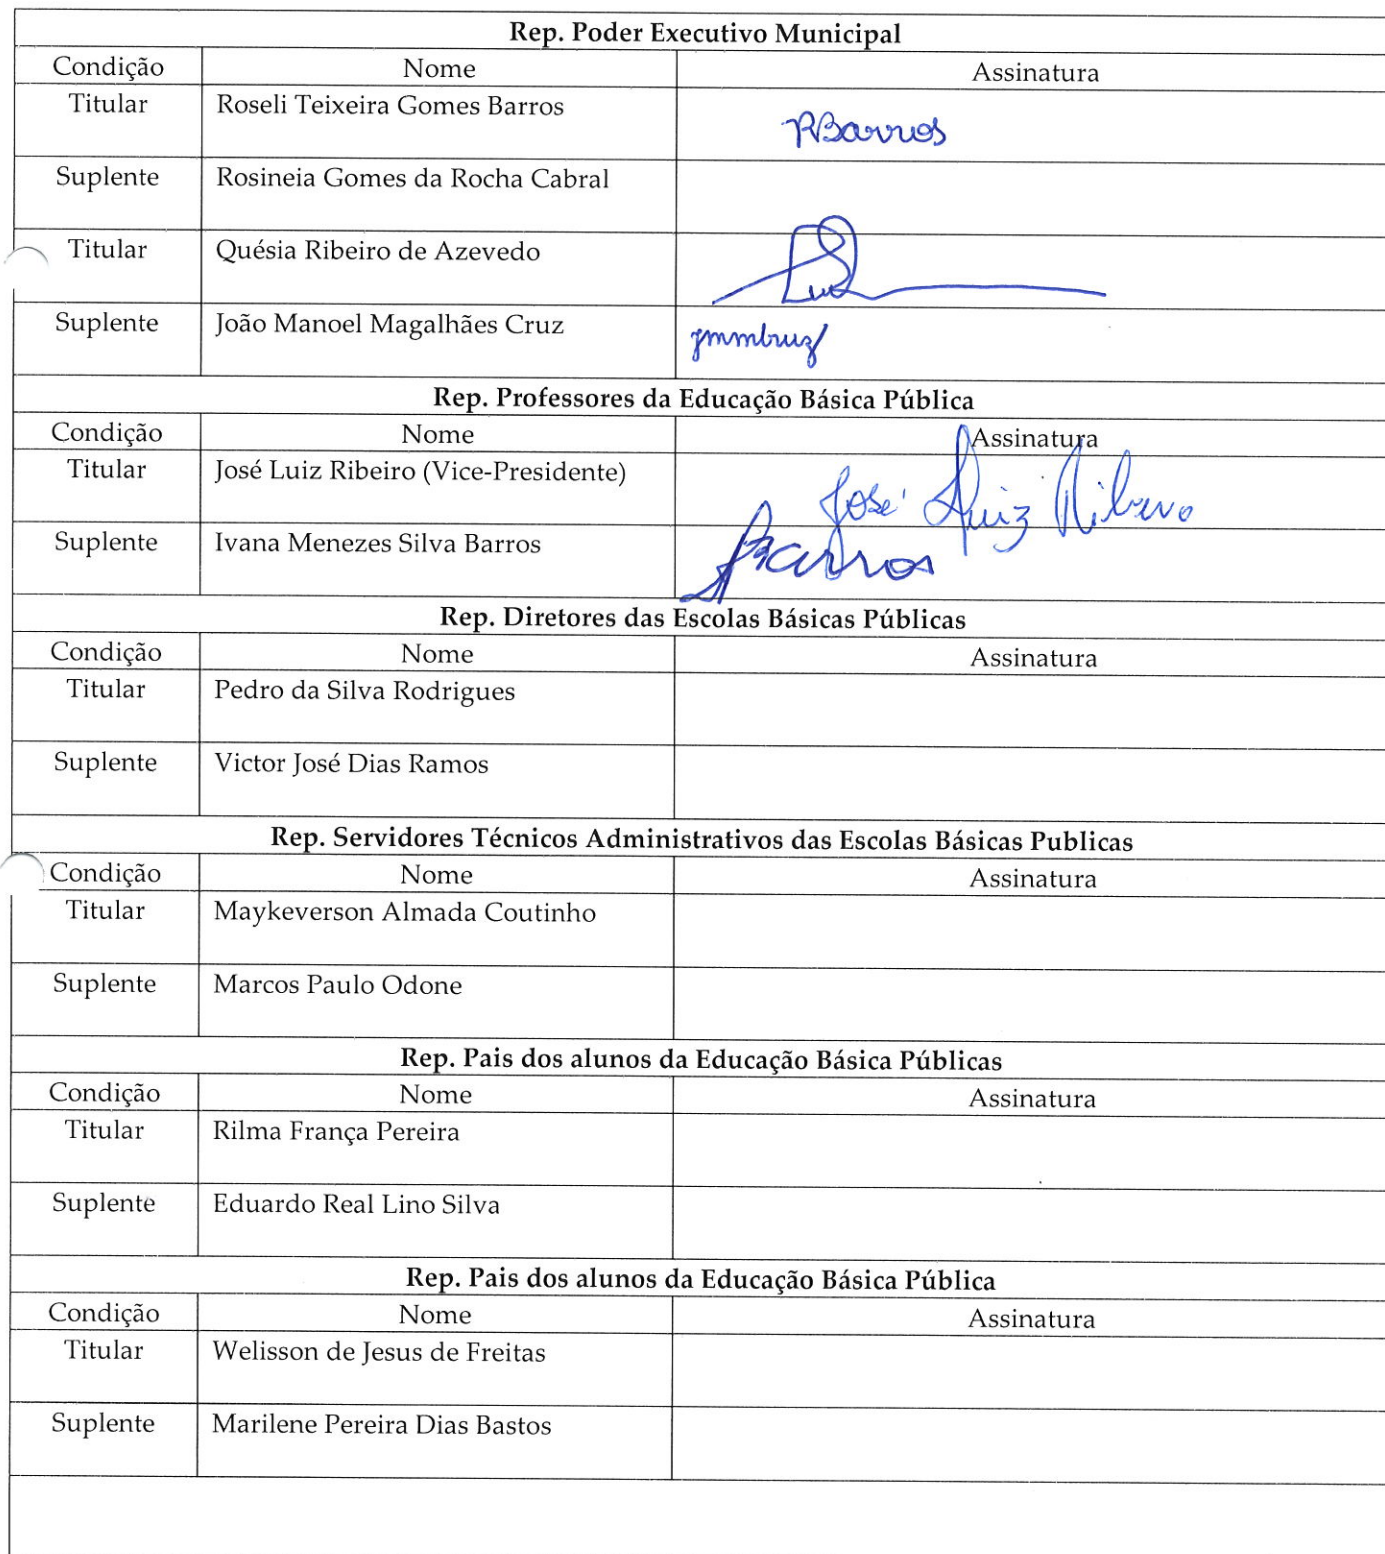 Rep. Poder Executivo Municipal
Condição Nome Assinatura
Titular Roseli Teixeira Gomes Barros RBarros
Suplente Rosineia Gomes da Rocha Cabral
Titular Quésia Ribeiro de Azevedo
Suplente João Manoel Magalhães Cruz jmmcruz
Rep. Professores da Educação Básica Pública
Condição Nome Assinatura
Titular José Luiz Ribeiro (Vice-Presidente) José Luiz Ribeiro
Suplente Ivana Menezes Silva Barros Barros
Rep. Diretores das Escolas Básicas Públicas
Condição Nome Assinatura
Titular Pedro da Silva Rodrigues
Suplente Victor José Dias Ramos
Rep. Servidores Técnicos Administrativos das Escolas Básicas Publicas
Condição Nome Assinatura
Titular Maykeverson Almada Coutinho
Suplente Marcos Paulo Odone
Rep. Pais dos alunos da Educação Básica Públicas
Condição Nome Assinatura
Titular Rilma França Pereira
Suplente Eduardo Real Lino Silva
Rep. Pais dos alunos da Educação Básica Pública
Condição Nome Assinatura
Titular Welisson de Jesus de Freitas
Suplente Marilene Pereira Dias Bastos